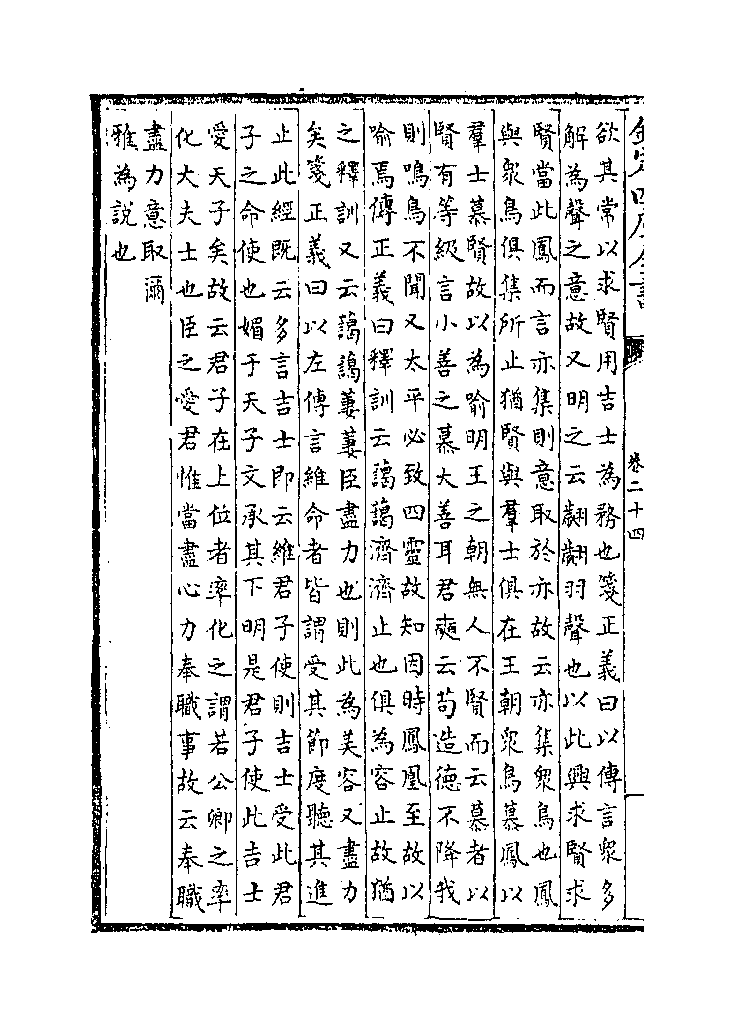 欽定四庫全書
卷二十四
欲其常以求賢用吉士為務也箋正義曰以傳言衆多
解為聲之意故又明之云翽翽羽聲也以此興求賢求
賢當此鳳而言亦集則意取於亦故云亦集衆鳥也鳳
與衆鳥俱集所止猶賢與羣士俱在王朝衆鳥慕鳳以
羣士慕賢故以為喻明王之朝無人不賢而云慕者以
賢有等級言小善之慕大善耳君奭云苟造德不降我
則鳴鳥不聞又太平必致四靈故知因時鳳凰至故以
喻焉傳正義曰釋訓云藹藹濟濟止也俱為容止故猶
之釋訓又云藹藹萋萋臣盡力也則此為美容又盡力
矣箋正義曰以左傳言維命者皆謂受其節度聽其進
止此經既云多言吉士即云維君子使則吉士受此君
子之命使也媚于天子文承其下明是君子使此吉士
愛天子矣故云君子在上位者率化之謂若公卿之率
化大夫士也臣之愛君惟當盡心力奉職事故云奉職
盡力意取爾
雅為說也